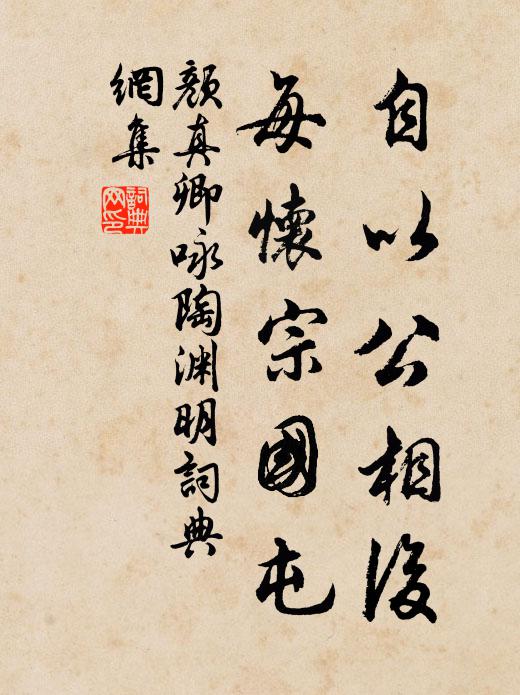 自以公相後
每懷宗國屯
顏真卿咏陶渊明詞典
網集
詞典
网印